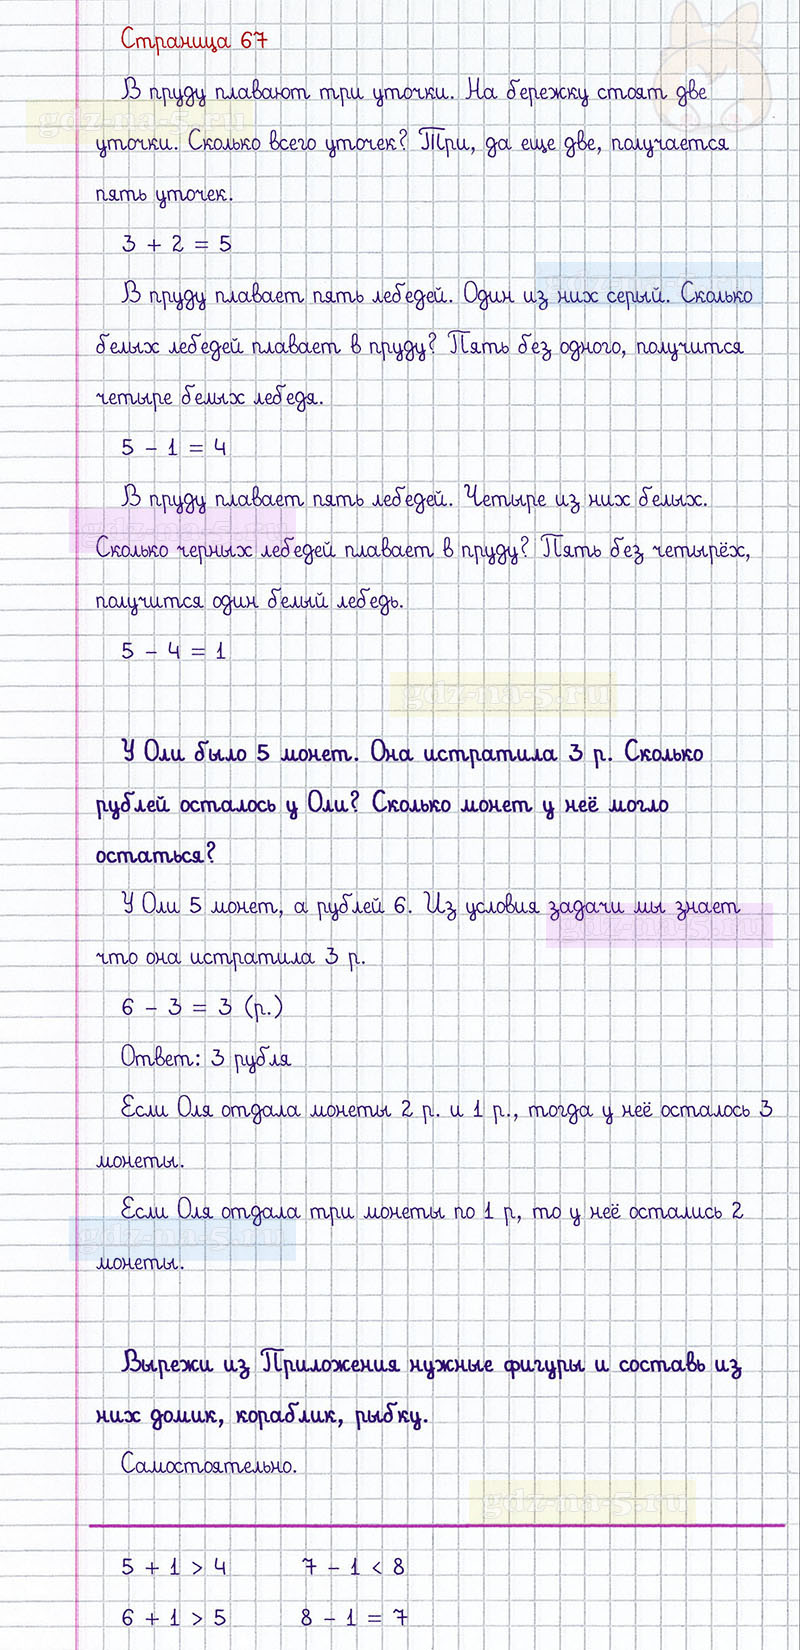 Страница 67
В пруду плавают три уточки. На бережку стоят две
gdz-na-5.ru
уточки. Сколько всего уточек? Три, да еще две, получается
пять уточек.
3 + 2 = 5
В пруду плавает пять лебедей. Один из них серый. Сколько
белых лебедей плавает в пруду? Пять без одного, получится
четыре белых лебедя.
5 - 1 = 4
В пруду плавает пять лебедей. Четыре из них белых.
gdz-na-5.ru
Сколько черных лебедей плавает в пруду? Пять без четырёх,
получится один белый лебедь.
5 - 4 = 1
gdz-na-5.ru
У Оли было 5 монет. Она истратила 3 р. Сколько
рублей осталось у Оли? Сколько монет у неё могло
остаться?
У Оли 5 монет, а рублей 6. Из условия задачи мы знает
gdz-na-5.ru
что она истратила 3 р.
6 - 3 = 3 (р.)
Ответ: 3 рубля
Если Оля отдала монеты 2 р. и 1 р., тогда у неё осталось 3
монеты.
Если Оля отдала три монеты по 1 р, то у неё остались 2
gdz-na-5.ru
монеты.
Вырежи из Приложения нужные фигуры и составь из
них домик, кораблик, рыбку.
Самостоятельно.
gdz-na-5.ru
5 + 1 > 4 7 - 1 < 8
6 + 1 > 5 8 - 1 = 7